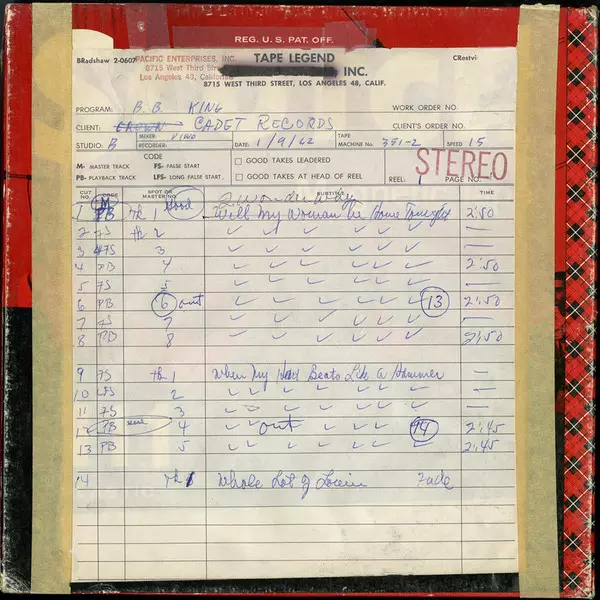 REG. U. S. PAT. OFF.
BRadshaw 2-0607 TAPE LEGEND CRestvi
PACIFIC ENTERPRISES, INC.
8715 West Third Stre INC.
Los Angeles 43, California
8715 WEST THIRD STREET, LOS ANGELES 48, CALIF.
PROGRAM: B. B. KING WORK ORDER NO.
CLIENT: CROWN CADET RECORDS CLIENT'S ORDER NO.
STUDIO: B MIXER: KINO RECORDER: DATE: 1/9/62 TAPE MACHINE No. 351-2 SPEED 15
CODE
M- MASTER TRACK FS- FALSE START
PB- PLAYBACK TRACK LFS- LONG FALSE START
GOOD TAKES LEADERED
GOOD TAKES AT HEAD OF REEL
REEL: 1 PAGE NO.
STEREO
CUT NO CODE SPOT OR MASTER NO. SUBTITLE TIME
I wonder Way
1 M PB Tk 1 Good Will My Woman be Home Tonight 2:50
2 FS tk 2 ✓ ✓ ✓ ✓ ✓ ✓ —
3 FS 3 ✓ ✓ ✓ ✓ ✓ ✓ —
4 PB 4 ✓ ✓ ✓ ✓ ✓ ✓ 2:50
5 FS 5 ✓ ✓ ✓ ✓ ✓ ✓ —
6 PB 6 out ✓ ✓ ✓ ✓ ✓ ✓ 13 2:50
7 FS 7 ✓ ✓ ✓ ✓ ✓ ✓ —
8 PB 8 ✓ ✓ ✓ ✓ ✓ ✓ 2:50
9 FS tk 1 When My Heart Beats Like a Hammer —
10 LFS 2 ✓ ✓ ✓ ✓ ✓ ✓ —
11 FS 3 ✓ ✓ ✓ ✓ ✓ ✓ —
12 PB 4 ✓ ✓ out ✓ ✓ 94 2:45
13 PB 5 ✓ ✓ ✓ ✓ ✓ ✓ 2:45
14 tk 1 Whole Lot of Lovin Fade